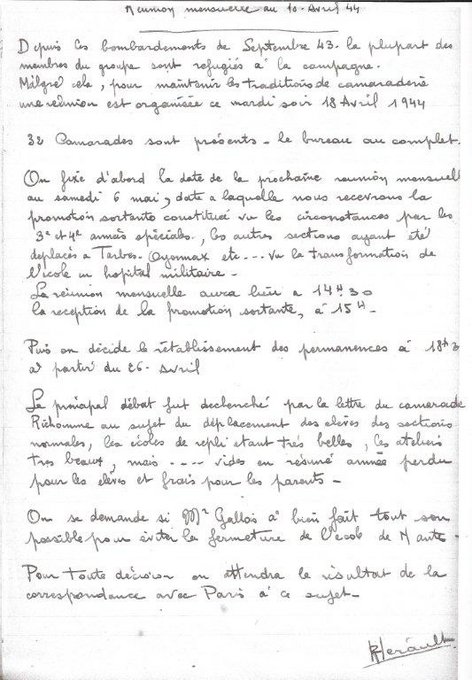 Réunion mensuelle au 10. Avril 44
Depuis les bombardements de Septembre 43. la plupart des
membres du groupe sont refugiés à la campagne.
Malgré cela, pour maintenir les traditions de camaraderie
une réunion est organisée ce mardi soir 18 Avril 1944
32 Camarades sont présents - le bureau au complet.
On fixe d'abord la date de la prochaine reunion mensuell
au samedi 6 mai, date a laquelle nous recevrons la
promotion sortante constituée vu les circonstances par les
3e et 4e années spéciales, les autres sections ayant été
deplacés a Tarbes. Oyonnax etc --- vu la transformation de
l'école en hopital militaire -
La réunion mensuelle aura lieu a 14H30
la reception de la promotion sortante, à 15H -
Puis on décide le rétablissement des permanences à 18H3
à partir du 26- Avril
Le principal débat fut declenché par la lettre du camarade
Richomme au sujet du déplacement des elèves des sections
normales, les écoles de repli etant très belles, les ateliers
tres beaux, mais ---- vides en résumé année perdu
pour les elèves et frais pour les parents -
On se demande si Mr Gallois à bien fait tout son
possible pour éviter la fermeture de l'école de Nante -
Pour toute décision on attendra le résultat de la
correspondance avec Paris à ce sujet -
RHerault